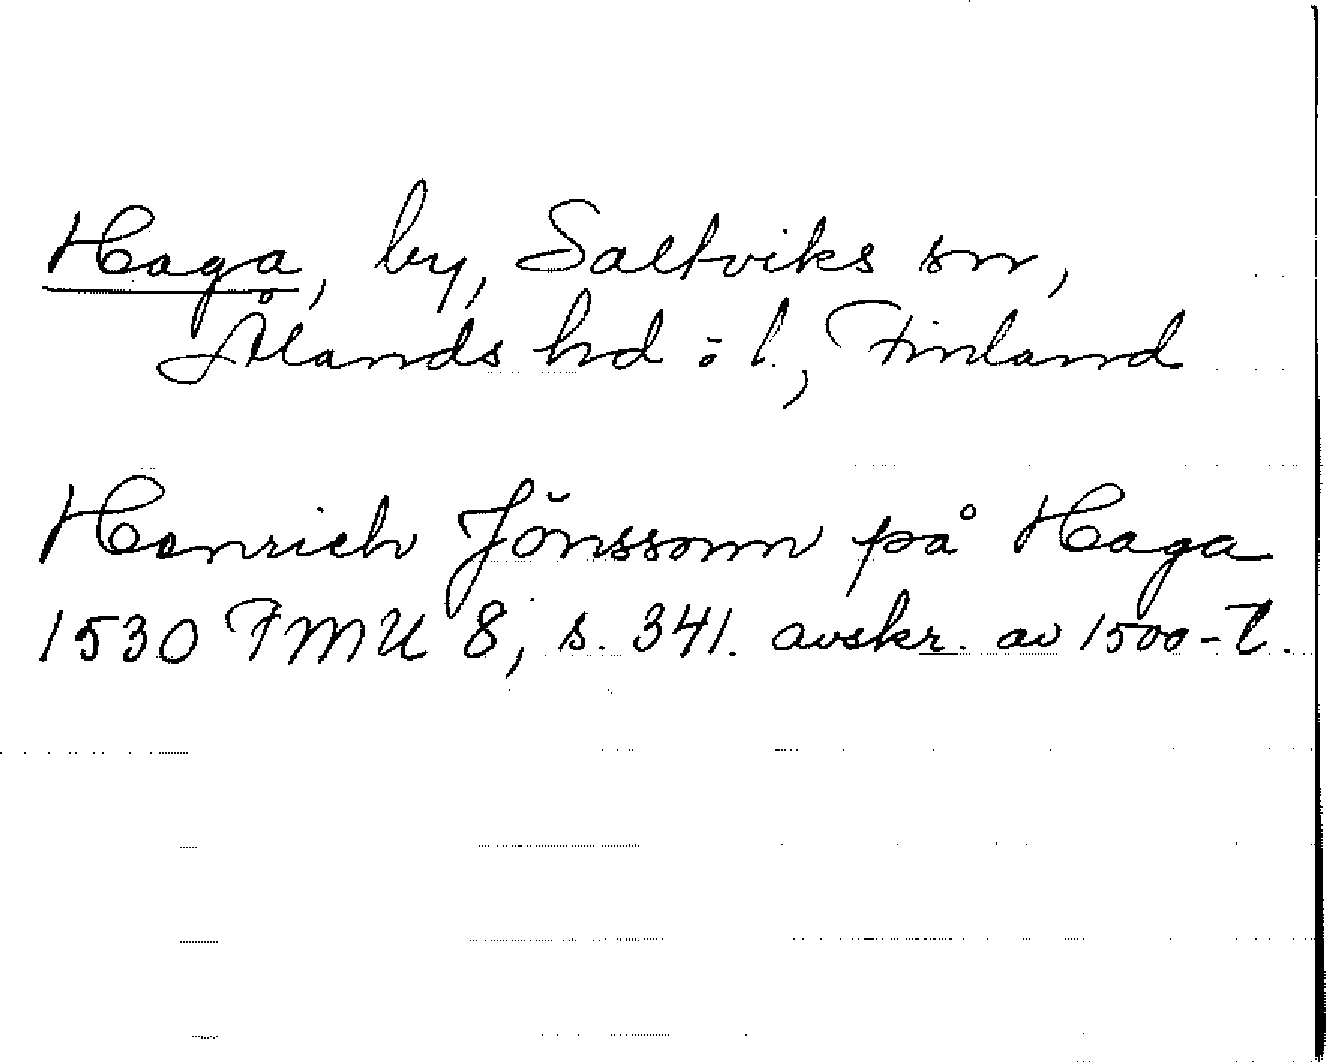 Haga, by, Saltviks sn,
Ålands hd o l., Finland
Henrich Jönssonn på Haga
1530 FMU 8, s. 341. avskr. av 1500-t.